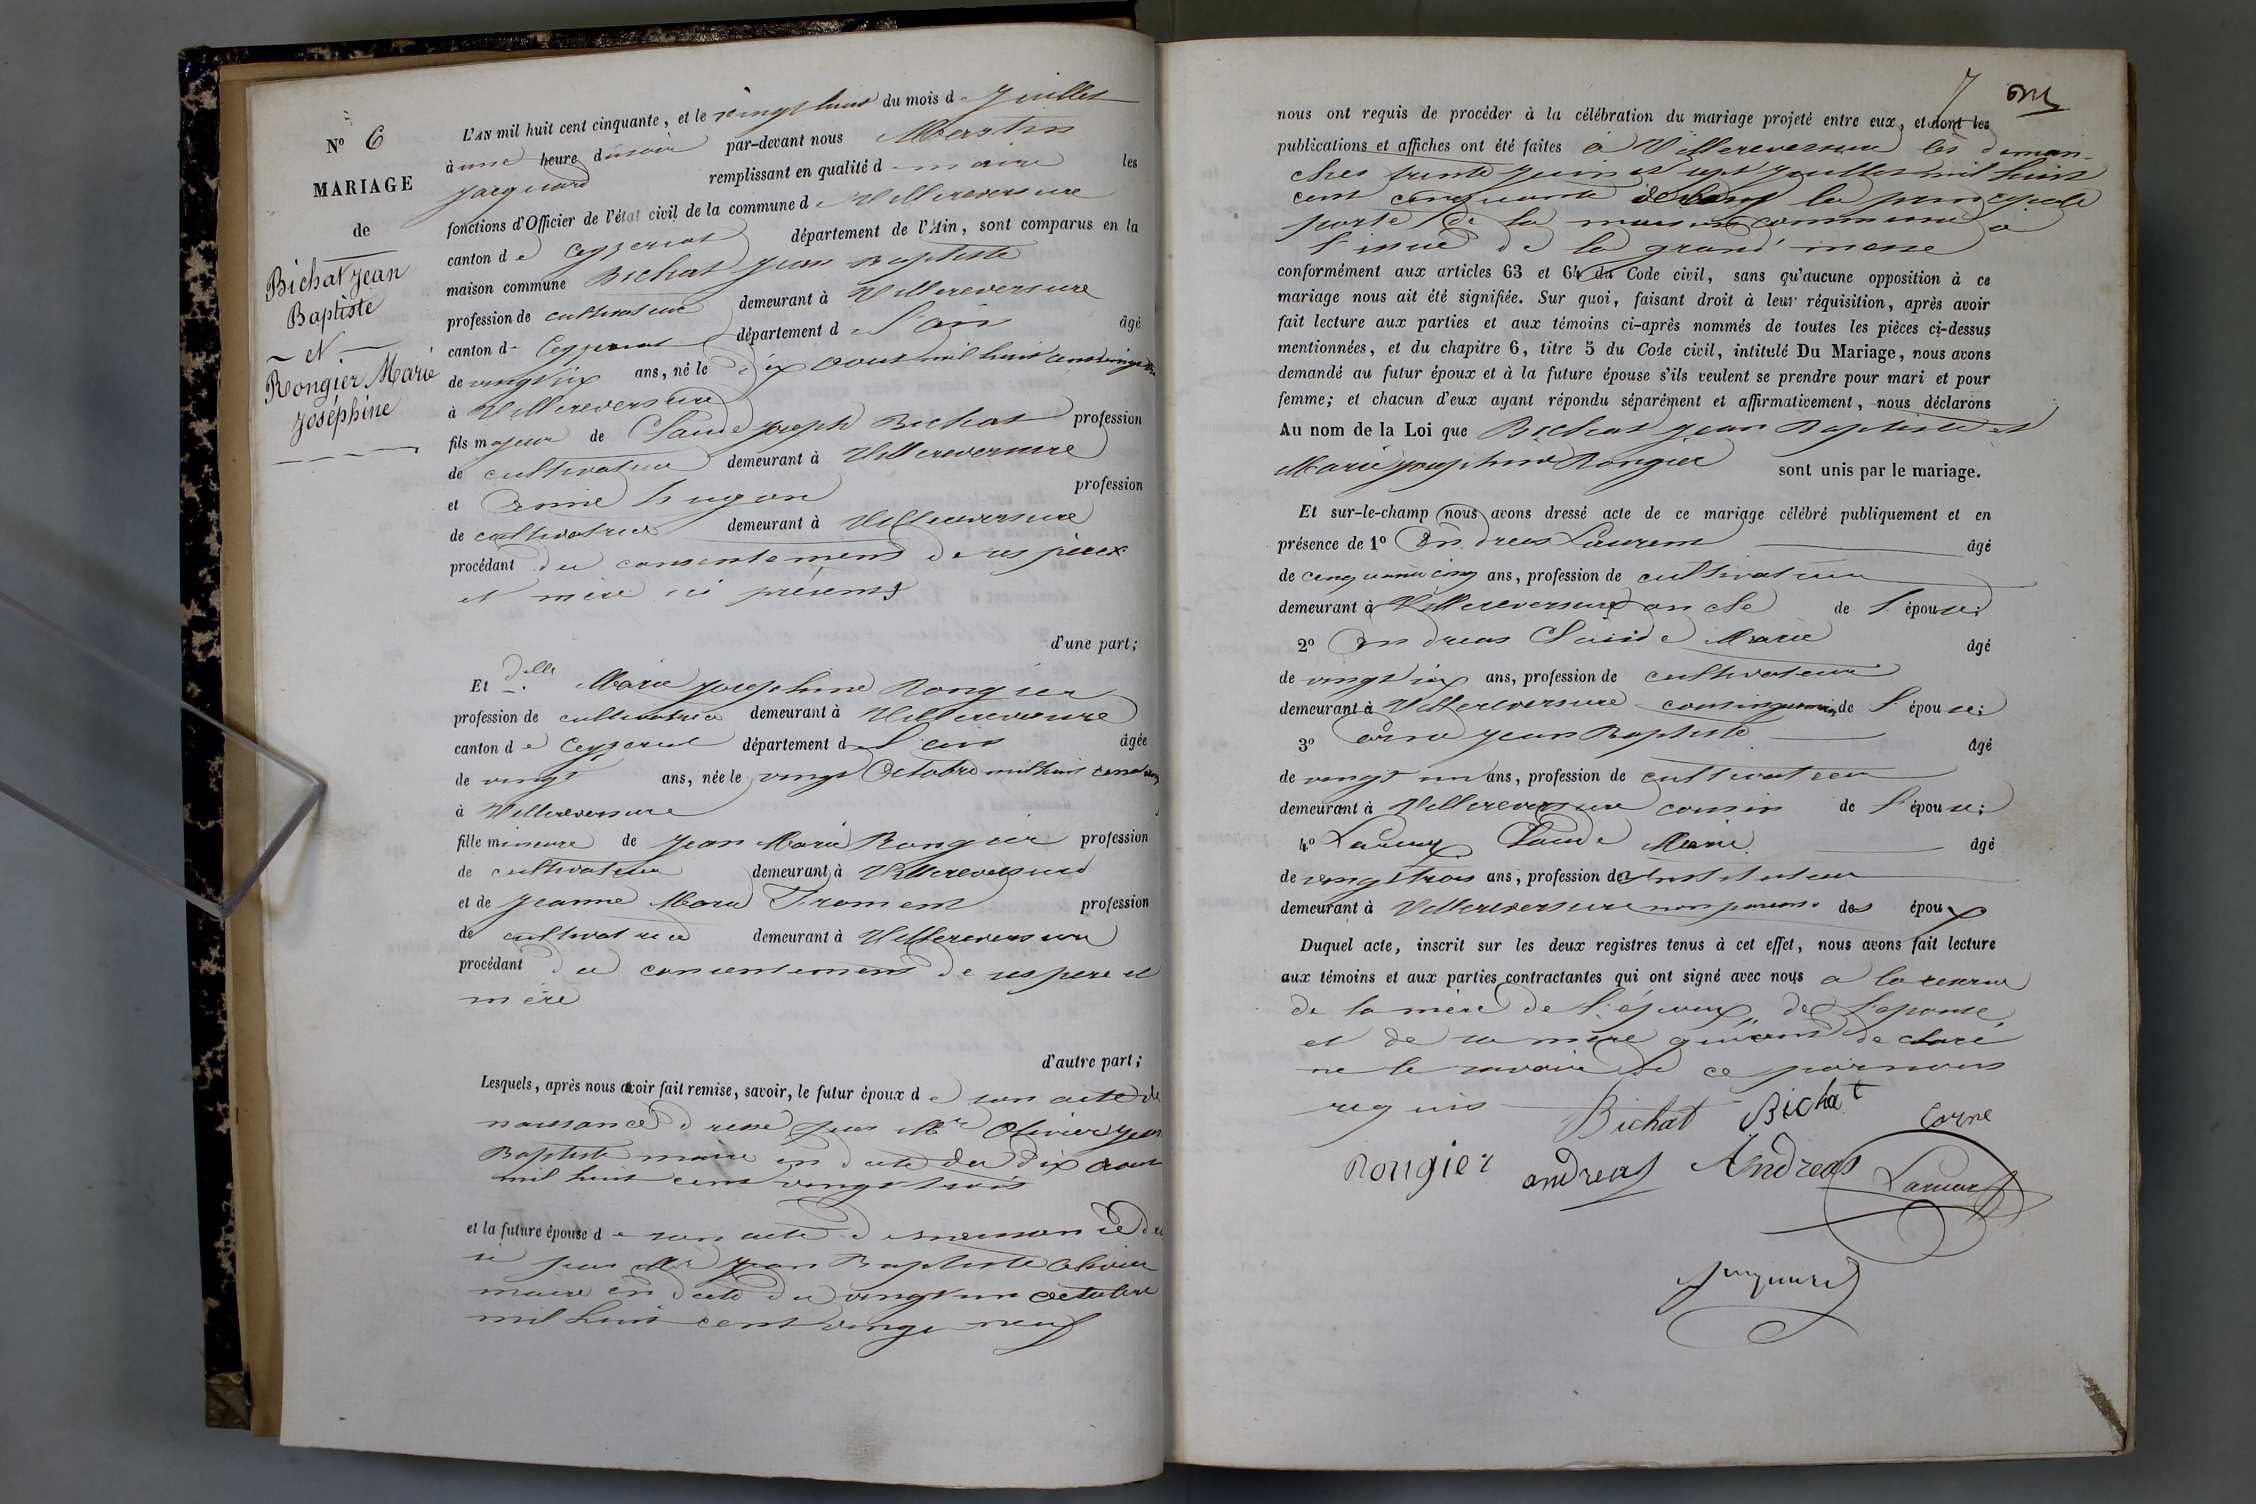 N° 6
MARIAGE
de
Bichat Jean
Baptiste
et
Rongier Marie
Joséphine
L'AN mil huit cent cinquante, et le vingt huit du mois de Juillet
à une heure du soir par-devant nous Martin
Jacquard remplissant en qualité de maire les
fonctions d'Officier de l'état civil de la commune de Villereversure
canton de Ceyzeriat département de l'Ain, sont comparus en la
maison commune Bichat Jean Baptiste
profession de cultivateur demeurant à Villereversure
canton de Ceyzeriat département de l'ain âgé
de vingt six ans, né le dix aout mil huit cent vingt
à Villereversure
fils majeur de Claude Joseph Bichat profession
de cultivateur demeurant à Villereversure
et Anne hugon profession
de cultivatrice demeurant à Villereversure
procédant du consentement de ses père
et mère ici présents
d'une part;
Et delle Marie Josephine Rongier
profession de cultivatrice demeurant à Villereversure
canton de Ceyzeriat département de l'ain âgée
de vingt ans, née le vingt Octobre mil huit cent
à Villereversure
fille mineure de Jean Marie Rongier profession
de cultivateur demeurant à Villereversure
et de Jeanne Marie Froment profession
de cultivatrice demeurant à Villereversure
procédant du consentement de ses père et
mère
d'autre part;
Lesquels, après nous avoir fait remise, savoir, le futur époux de son acte de
naissance dressé par Mr Olivier Jean
Baptiste maire en date du dix aout
mil huit cent vingt trois
et la future épouse de son acte de naissance dres
sé par Mr Jean Baptiste Olivier
maire en date du vingt un octobre
mil huit cent vingt neuf
7
nous ont requis de procéder à la célébration du mariage projeté entre eux, et dont les
publications et affiches ont été faites à Villereversure les diman-
ches trente juin et sept juillet mil huit
cent cinquante devant la principale
porte de la maison commune à
l'issue de la grand'messe
conformément aux articles 63 et 64 du Code civil, sans qu'aucune opposition à ce
mariage nous ait été signifiée. Sur quoi, faisant droit à leur réquisition, après avoir
fait lecture aux parties et aux témoins ci-après nommés de toutes les pièces ci-dessus
mentionnées, et du chapitre 6, titre 5 du Code civil, intitulé Du Mariage, nous avons
demandé au futur époux et à la future épouse s'ils veulent se prendre pour mari et pour
femme; et chacun d'eux ayant répondu séparément et affirmativement, nous déclarons
Au nom de la Loi que Bichat Jean Baptiste et
Marie Josephine Rongier sont unis par le mariage.
Et sur-le-champ nous avons dressé acte de ce mariage célébré publiquement et en
présence de 1° Andreas Laurent âgé
de cinquante cinq ans, profession de cultivateur
demeurant à Villereversure oncle de l'épouse;
2° Andreas Claude Marie âgé
de vingt six ans, profession de cultivateur
demeurant à Villereversure cousin germain de l'épouse;
3° Corne Jean Baptiste âgé
de vingt un ans, profession de cultivateur
demeurant à Villereversure cousin de l'épouse;
4° Claude Marie âgé
de vingt trois ans, profession de Instituteur
demeurant à Villereversure non parent des époux
Duquel acte, inscrit sur les deux registres tenus à cet effet, nous avons fait lecture
aux témoins et aux parties contractantes qui ont signé avec nous a la reserve
de la mère de l'époux, de l'épouse
et de sa mère qui ont déclaré
ne le savoir de ce par nous
requis
Bichat Bichat Corne
Rongier andreas Andreas
Jacquard